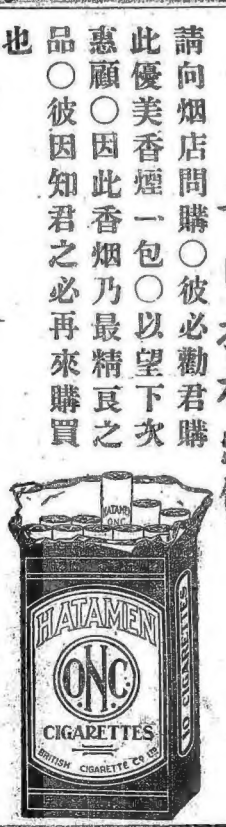 請向烟店問購○彼必勸君購
此優美香煙一包○以望下次
惠顧○因此香烟乃最精良之
品○彼因知君之必再來購買
也
HATAMEN
O.N.C.
HATAMEN
O.N.C.
CIGARETTES
BRITISH CIGARETTE CO LTD
10 CIGARETTES